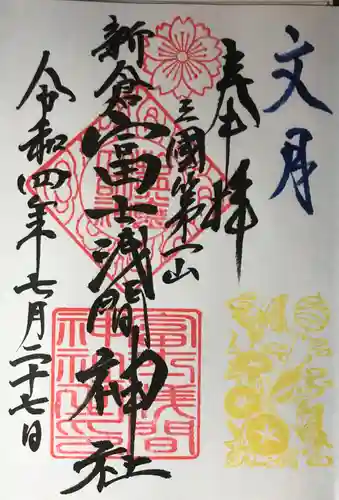 文月
奉拝
三國第一山
新倉富士浅間神社
令和四年七月二十七日
冨士浅間
神社之印